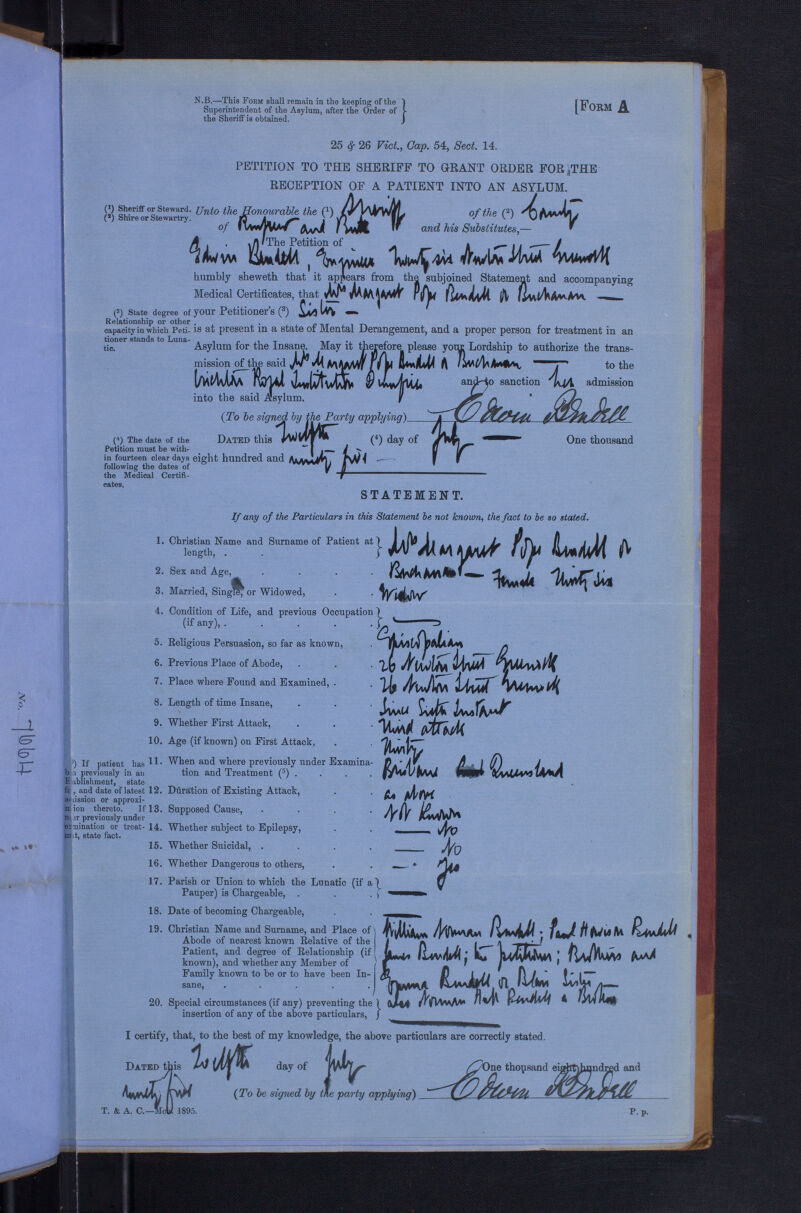 N.B.—This Form shall remain in the keeping of the
Superintendent of the Asylum, after the Order of
the Sheriff is obtained.
[Form A
25 & 26 Vict., Cap. 54, Sect. 14.
PETITION TO THE SHERIFF TO GRANT ORDER FOR THE
RECEPTION OF A PATIENT INTO AN ASYLUM.
(1) Sheriff or Steward.
(2) Shire or Stewartry.
Unto the Honourable the (1) Sheriff of the (2) County
of Renfrew and Bute and his Substitutes,—
The Petition of
Edwin Bendell, Engineer Twenty six Newton Street Greenock
humbly sheweth that it appears from the subjoined Statement and accompanying
Medical Certificates, that Mrs Margaret Pope Bendell or Buchanan —
(3) State degree of
Relationship or other
capacity in which Peti-
tioner stands to Luna-
tic.
your Petitioner's (3) Sister —
is at present in a state of Mental Derangement, and a proper person for treatment in an
Asylum for the Insane. May it therefore please your Lordship to authorize the trans-
mission of the said Mrs Margaret Pope Bendell or Buchanan — to the
Crichton Royal Institution Dumfries and to sanction her admission
into the said Asylum.
(To be signed by the Party applying) Edwin Bendell
(4) The date of the
Petition must be with-
in fourteen clear days
following the dates of
the Medical Certifi-
cates.
Dated this Twelfth (4) day of July — One thousand
eight hundred and ninety five —
STATEMENT.
If any of the Particulars in this Statement be not known, the fact to be so stated.
1. Christian Name and Surname of Patient at
length, . . Mrs Margaret Pope Bendell or
2. Sex and Age, . . . . Buchanan — Female Thirty six
3. Married, Single, or Widowed, . . Widow
4. Condition of Life, and previous Occupation
(if any), . . . . . —
5. Religious Persuasion, so far as known, . Episcopalian
6. Previous Place of Abode, . . . 26 Newton Street Greenock
7. Place where Found and Examined, . . 26 Newton Street Greenock
8. Length of time Insane, . . . Since Sixth Instant
9. Whether First Attack, . . . Third attack
10. Age (if known) on First Attack, . . Thirty
(5) If patient has
been previously in an
Establishment, state
, and date of latest
admission or approxi-
mation thereto. If
never previously under
examination or treat-
ment, state fact.
11. When and where previously under Examina-
tion and Treatment (5) . . . . Brisbane Queensland
12. Duration of Existing Attack, . . as above
13. Supposed Cause, . . . . Not Known
14. Whether subject to Epilepsy, . . — No
15. Whether Suicidal, . . . . — No
16. Whether Dangerous to others, . . — Yes
17. Parish or Union to which the Lunatic (if a
Pauper) is Chargeable, . . . —
18. Date of becoming Chargeable, . . —
19. Christian Name and Surname, and Place of
Abode of nearest known Relative of the
Patient, and degree of Relationship (if
known), and whether any Member of
Family known to be or to have been In-
sane, . . . . . .
William Norman Bendell; Paul Bendell
James Bendell; the petitioner; Brothers and
Emma Bendell or Blair Sister —
also Norman Bendell a Brother
20. Special circumstances (if any) preventing the
insertion of any of the above particulars, —
I certify, that, to the best of my knowledge, the above particulars are correctly stated.
Dated this Twelfth day of July One thousand eight hundred and
ninety five (To be signed by the party applying) Edwin Bendell
T. & A. C.— 1895.
P. p.
No. 7664